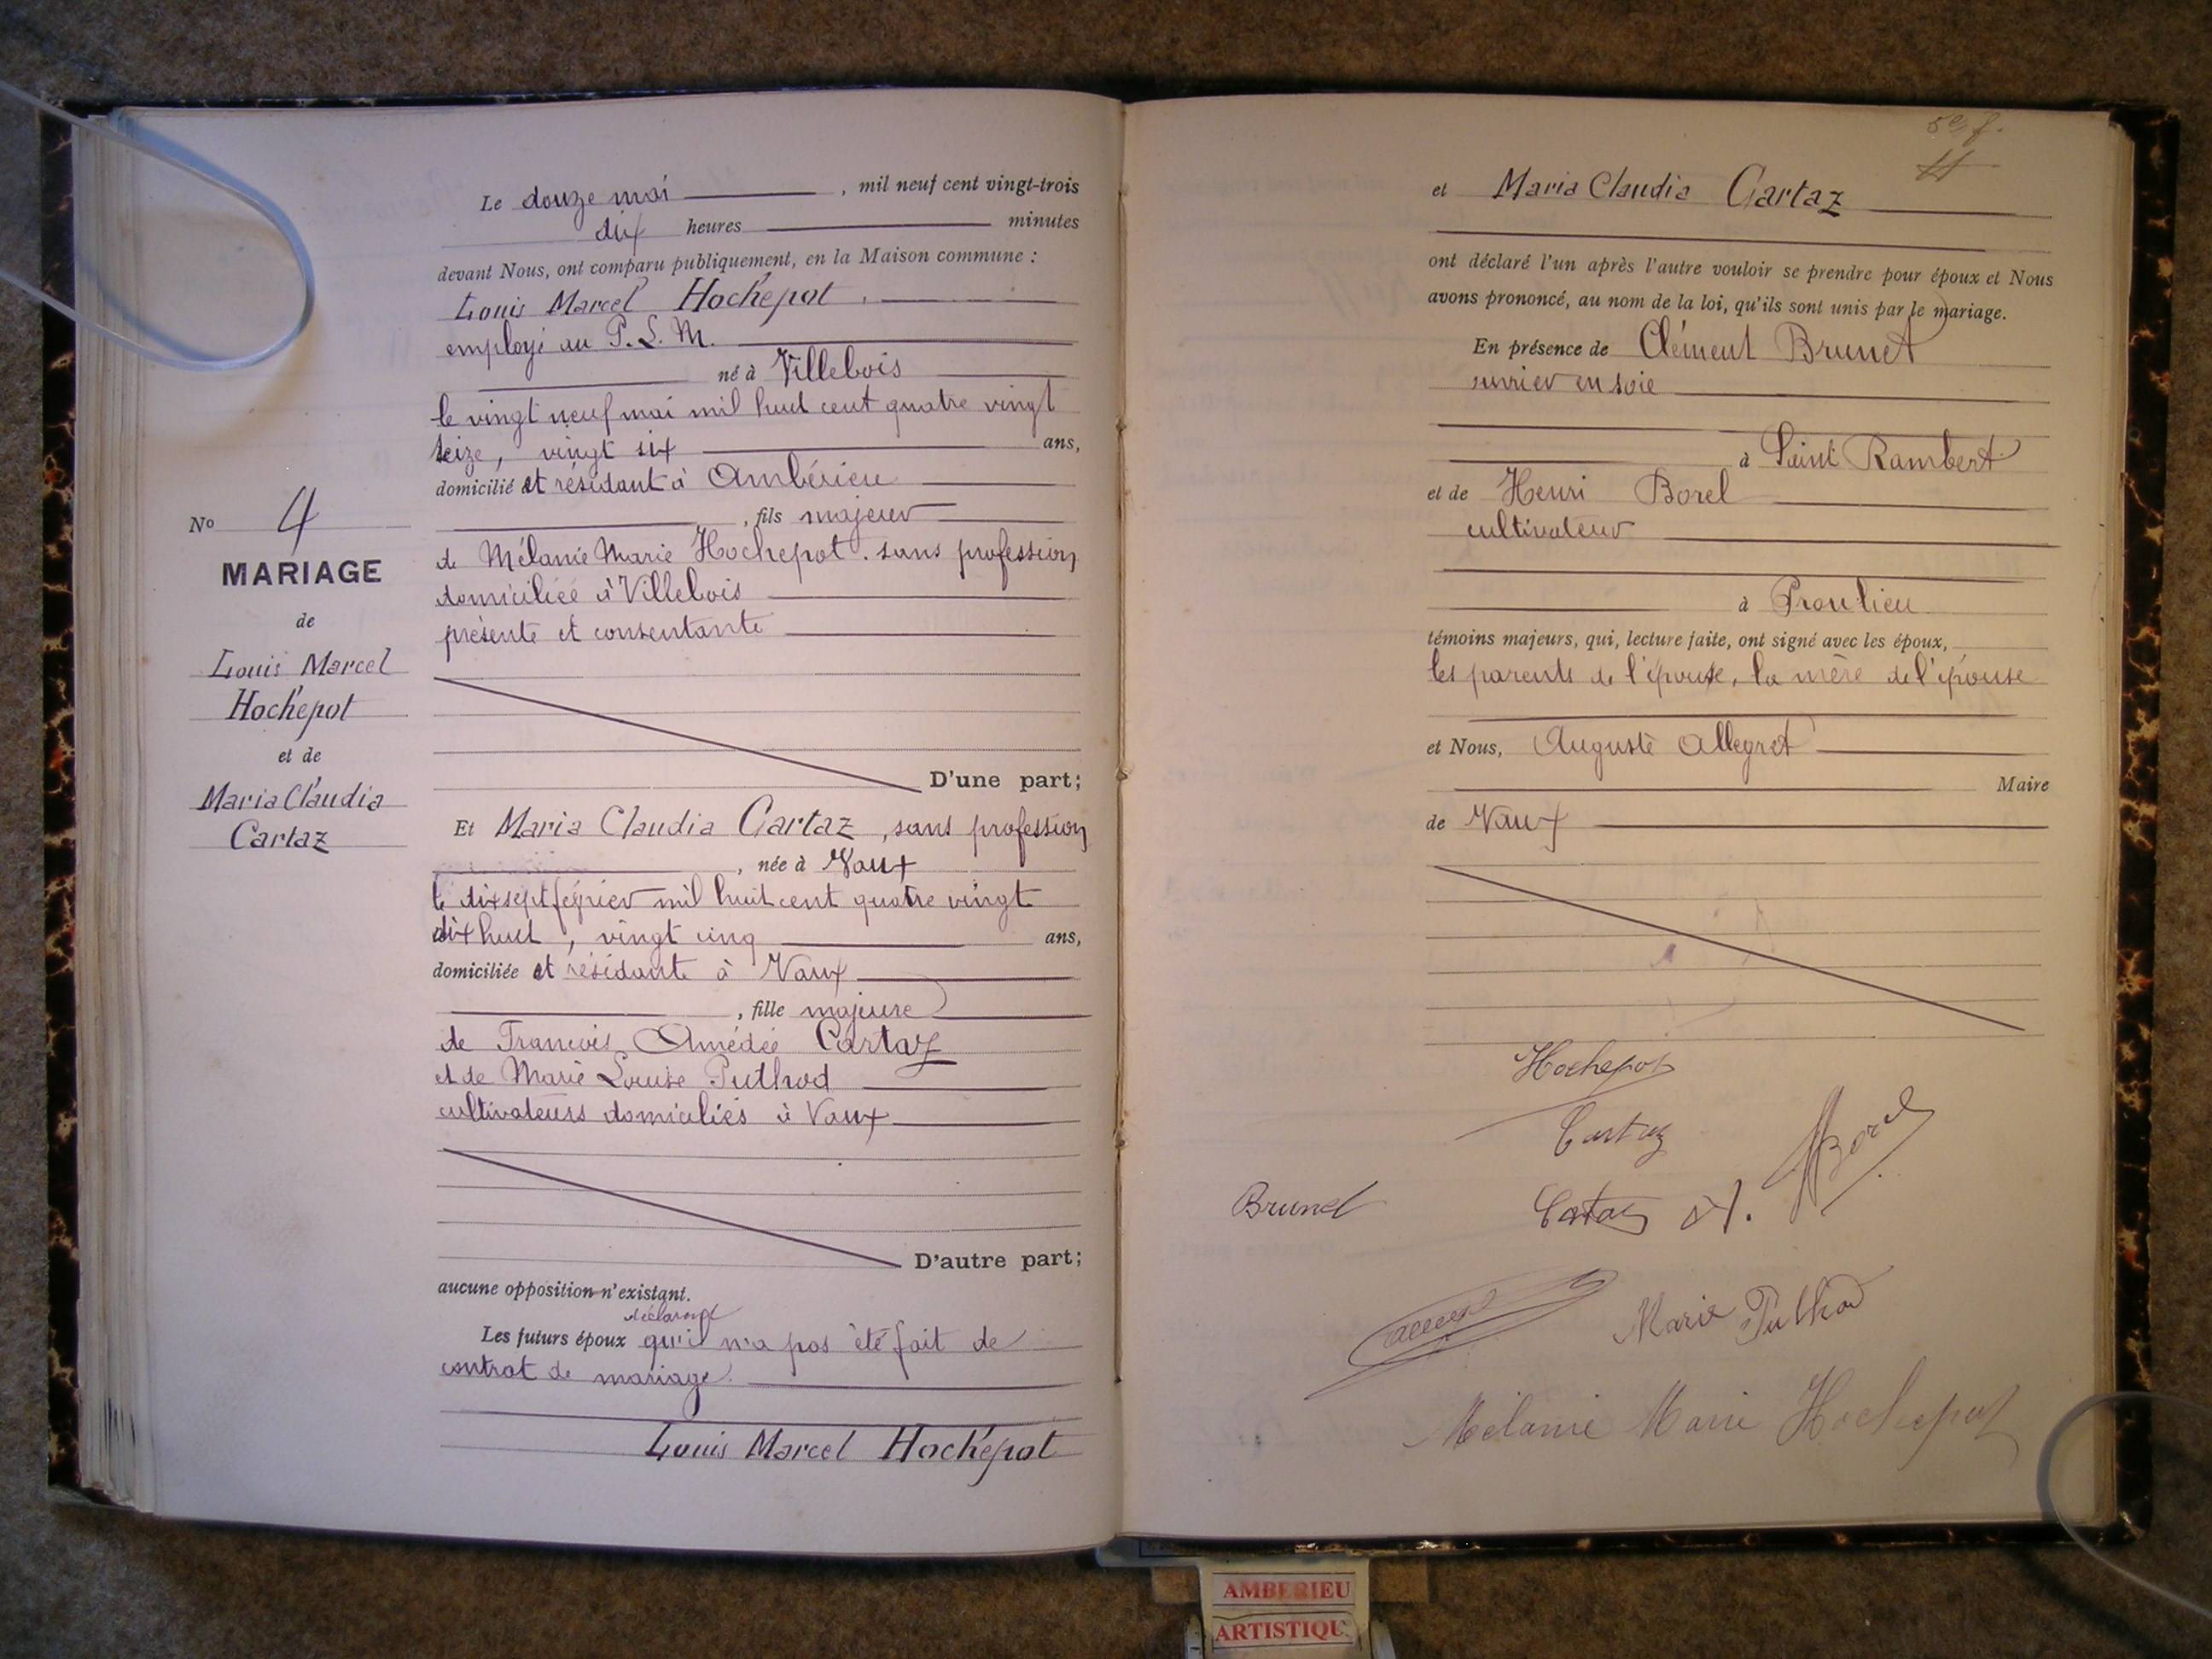 Le douze mai , mil neuf cent vingt-trois
dix heures minutes
devant Nous, ont comparu publiquement, en la Maison commune :
Louis Marcel Hochepot
employé au P. L. M.
né à Villebois
le vingt neuf mai mil huit cent quatre vingt
seize, vingt six ans,
domicilié et résidant à Ambérieu
, fils majeur
de Mélanie Marie Hochepot. sans profession
domiciliée à Villebois
présente et consentante
D'une part;
Et Maria Claudia Cartaz, sans profession
, née à Vaux
le dix sept février mil huit cent quatre vingt
dix huit, vingt cinq ans,
domiciliée et résidante à Vaux
, fille majeure
de François Amédée Cartaz
et de Marie Louise Puthod
cultivateurs domiciliés à Vaux
D'autre part;
aucune opposition n'existant.
déclarent
Les futurs époux qu'il n'a pas été fait de
contrat de mariage.
Louis Marcel Hochepot
No 4
MARIAGE
de
Louis Marcel
Hochepot
et de
Maria Claudia
Cartaz
5e f.
et Maria Claudia Cartaz
ont déclaré l'un après l'autre vouloir se prendre pour époux et Nous
avons prononcé, au nom de la loi, qu'ils sont unis par le mariage.
En présence de Clément Brunet
ouvrier en soie
à Saint Rambert
et de Henri Borel
cultivateur
à Proulieu
témoins majeurs, qui, lecture faite, ont signé avec les époux,
les parents de l'épouse, la mère de l'épouse
et Nous, Auguste Allegret
Maire
de Vaux
Hochepot
Cartaz
Borel
Brunet
Cartaz A.
Marie Puthod
Mélanie Marie Hochepot
AMBERIEU
ARTISTIQU